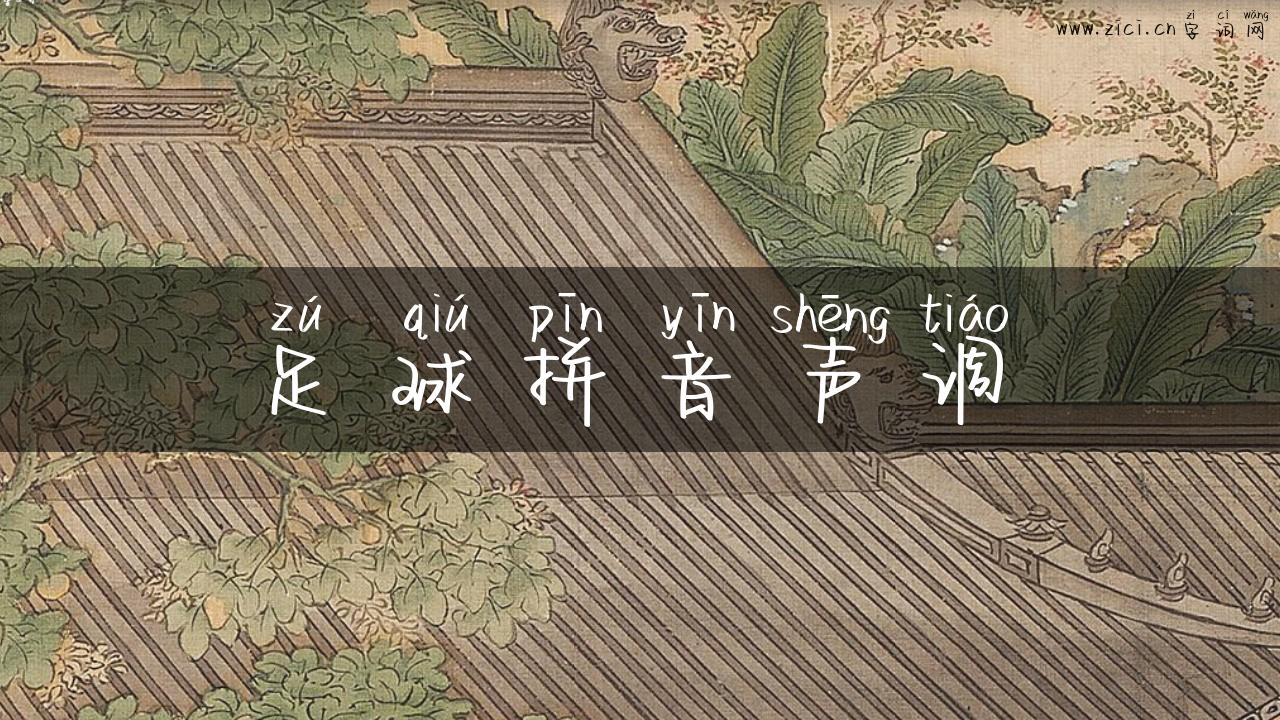 zì cí wǎng
www.zici.cn 字词网
zú qiú pīn yīn shēng tiáo
足球拼音声调